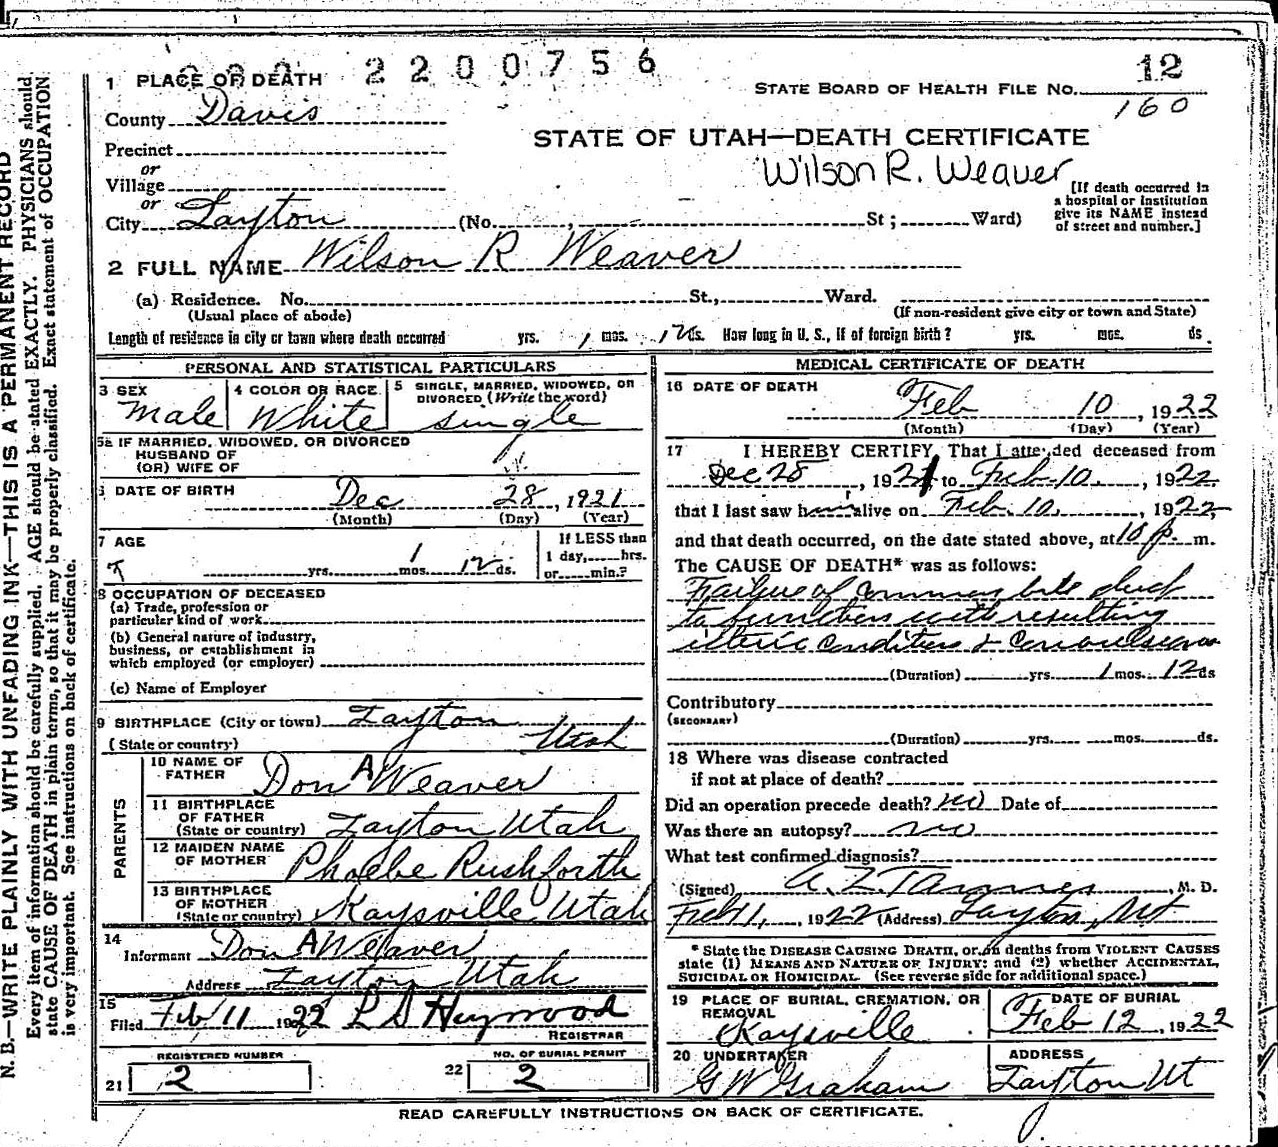 2200756
12
1 PLACE OF DEATH
STATE BOARD OF HEALTH FILE No.
160
County Davis
STATE OF UTAH—DEATH CERTIFICATE
Precinct
Wilson R. Weaver
or
Village
or
City Layton (No. St; Ward)
[If death occurred in
a hospital or institution
give its NAME instead
of street and number.]
2 FULL NAME Wilson R Weaver
(a) Residence. No. St., Ward.
(Usual place of abode) (If non-resident give city or town and State)
Length of residence in city or town where death occurred yrs. 1 mos. 12 ds. How long in U. S., if of foreign birth? yrs. mos. ds.
PERSONAL AND STATISTICAL PARTICULARS
3 SEX
Male
4 COLOR OR RACE
White
5 SINGLE, MARRIED, WIDOWED, OR
DIVORCED (Write the word)
single
5a IF MARRIED, WIDOWED, OR DIVORCED
HUSBAND OF
(OR) WIFE OF
6 DATE OF BIRTH Dec 28, 1921
(Month) (Day) (Year)
7 AGE
yrs. 1 mos. 12 ds.
If LESS than
1 day, hrs.
or min.?
8 OCCUPATION OF DECEASED
(a) Trade, profession or
particular kind of work
(b) General nature of industry,
business, or establishment in
which employed (or employer)
(c) Name of Employer
9 BIRTHPLACE (City or town) Layton
(State or country) Utah
PARENTS
10 NAME OF
FATHER Don A Weaver
11 BIRTHPLACE
OF FATHER
(State or country) Layton Utah
12 MAIDEN NAME
OF MOTHER Phoebe Rushforth
13 BIRTHPLACE
OF MOTHER
(State or country) Kaysville Utah
14
Informent Don A Weaver
Address Layton Utah
15
Filed Feb 11 1922 L D Heywood
REGISTRAR
REGISTERED NUMBER
21 2
NO. OF BURIAL PERMIT
22 2
MEDICAL CERTIFICATE OF DEATH
16 DATE OF DEATH
Feb 10, 1922
(Month) (Day) (Year)
17 I HEREBY CERTIFY, That I attended deceased from
Dec 28, 1921 to Feb 10, 1922
that I last saw him alive on Feb. 10, 1922,
and that death occurred, on the date stated above, at 10 p. m.
The CAUSE OF DEATH* was as follows:
Failure of common bile duct
to function with resulting
icteric condition & convulsions
(Duration) yrs. 1 mos. 12 ds
Contributory
(SECONDARY)
(Duration) yrs. mos. ds.
18 Where was disease contracted
if not at place of death?
Did an operation precede death? no Date of
Was there an autopsy? no
What test confirmed diagnosis?
(Signed) A. Z. Tanner, M. D.
Feb 11, 1922 (Address) Layton, Ut
* State the DISEASE CAUSING DEATH, or, in deaths from VIOLENT CAUSES
state (1) MEANS AND NATURE OF INJURY; and (2) whether ACCIDENTAL,
SUICIDAL OR HOMICIDAL. (See reverse side for additional space.)
19 PLACE OF BURIAL, CREMATION, OR
REMOVAL
Kaysville
DATE OF BURIAL
Feb 12, 1922
20 UNDERTAKER
G W Graham
ADDRESS
Layton Ut
READ CAREFULLY INSTRUCTIONS ON BACK OF CERTIFICATE.
N. B.—WRITE PLAINLY WITH UNFADING INK—THIS IS A PERMANENT RECORD
Every item of information should be carefully supplied. AGE should be stated EXACTLY. PHYSICIANS should
state CAUSE OF DEATH in plain terms, so that it may be properly classified. Exact statement of OCCUPATION
is very important. See instructions on back of certificate.